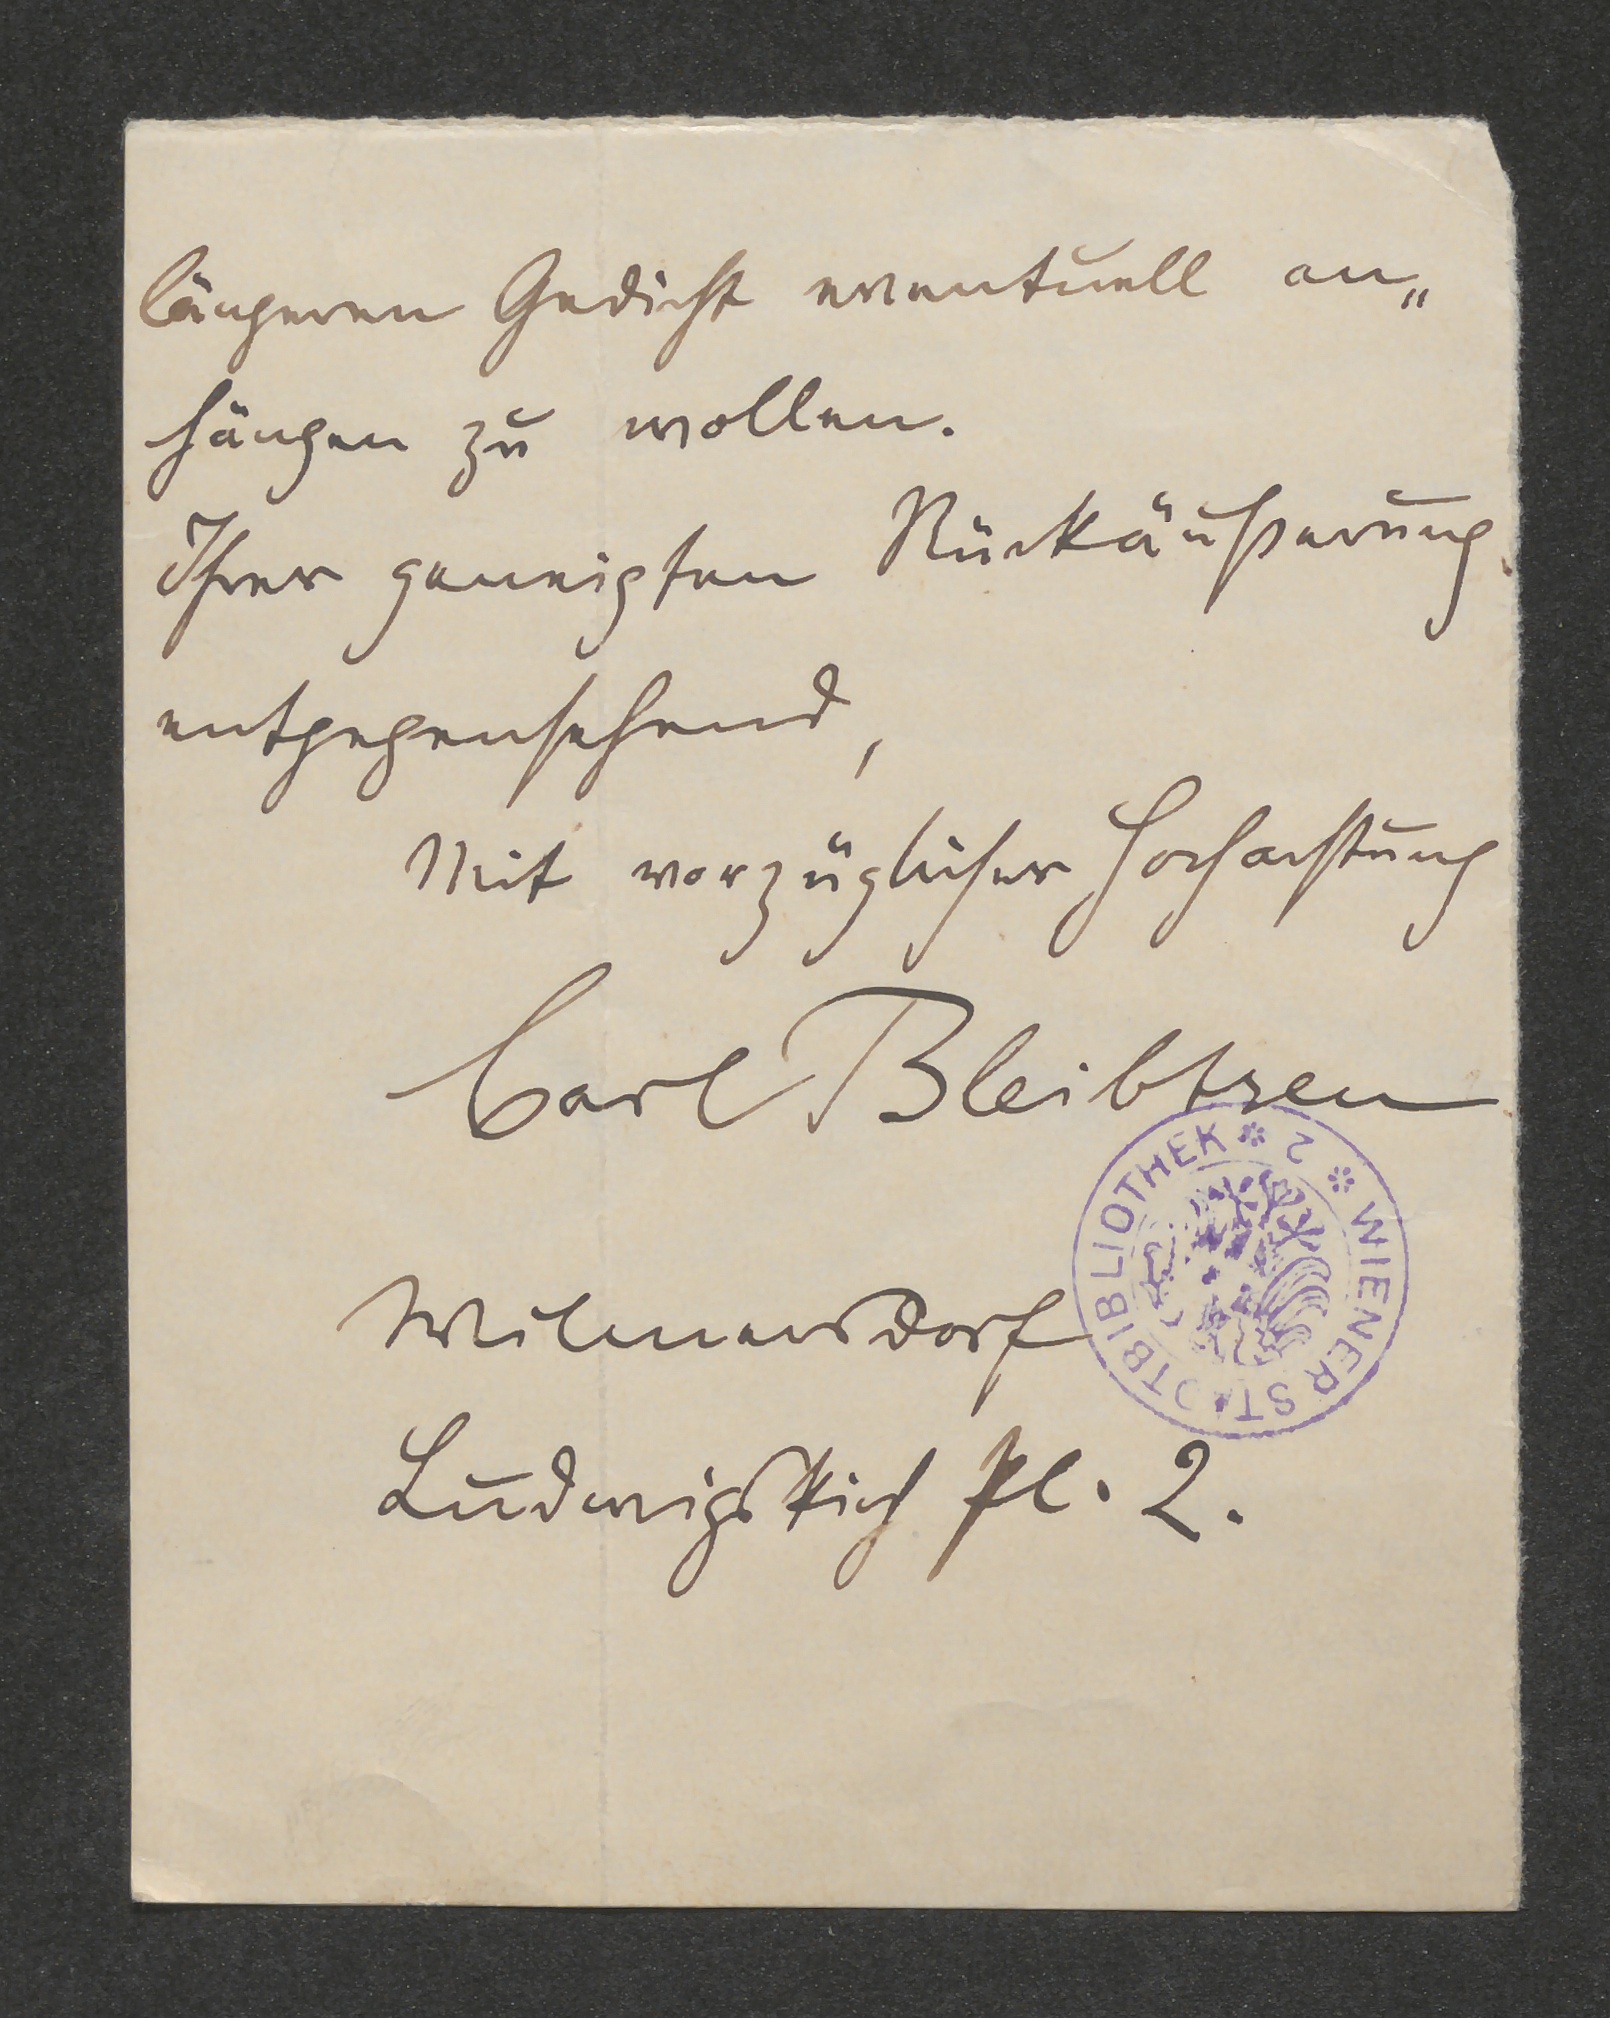 längeren Gedicht eventuell an„
hängen zu wollen.
Ihrer geneigten Rückäußerung
entgegensehend,
Mit vorzüglicher Hochachtung
Carl Bleibtreu
Wilmersdorf
Ludwigskirch Pl. 2.
WIENER STADTBIBLIOTHEK * 2 *